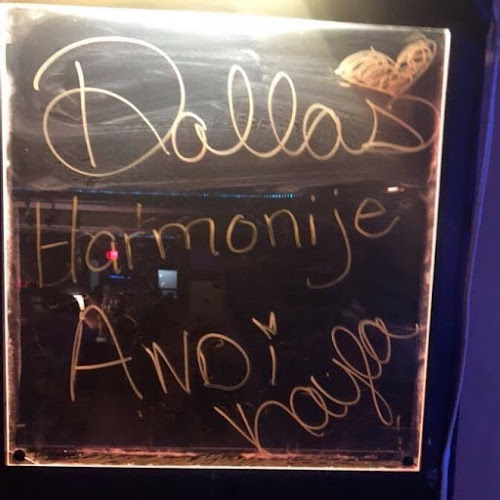 Dallas
Harmonije
ANDi
Kayla